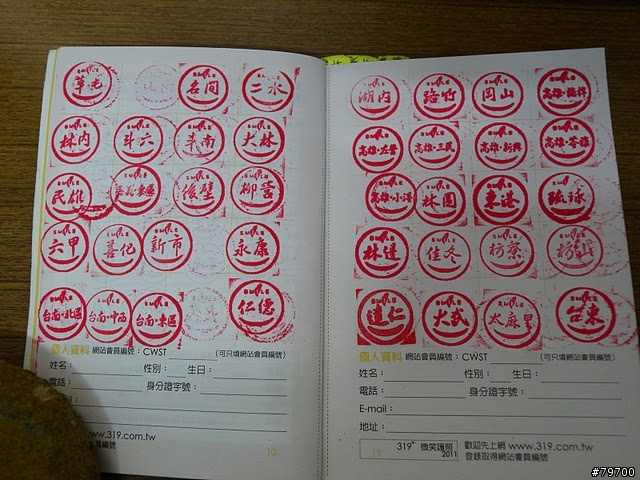 草屯 名間 二水
林內 斗六 斗南 大林
民雄 嘉義·東區 後壁 柳營
六甲 善化 新市 永康
台南·北區 台南·中西 台南·東區 仁德
個人資料 網站會員編號：CWST （可只填網站會員編號）
姓名： 性別： 生日：
電話： 身分證字號：
www.319.com.tw
員編號
10
湖內 路竹 岡山 高雄·楠梓
高雄·左營 高雄·三民 高雄·新興 高雄·苓雅
高雄·小港 林園 東港
林邊 佳冬 枋寮 枋山
達仁 大武 太麻里 台東
個人資料 網站會員編號：CWST （可只填網站會員編號）
姓名： 性別： 生日：
電話： 身分證字號：
E-mail：
地址：
11 319+ 微笑護照 2011 歡迎先上網 www.319.com.tw
登錄取得網站會員編號
#79700